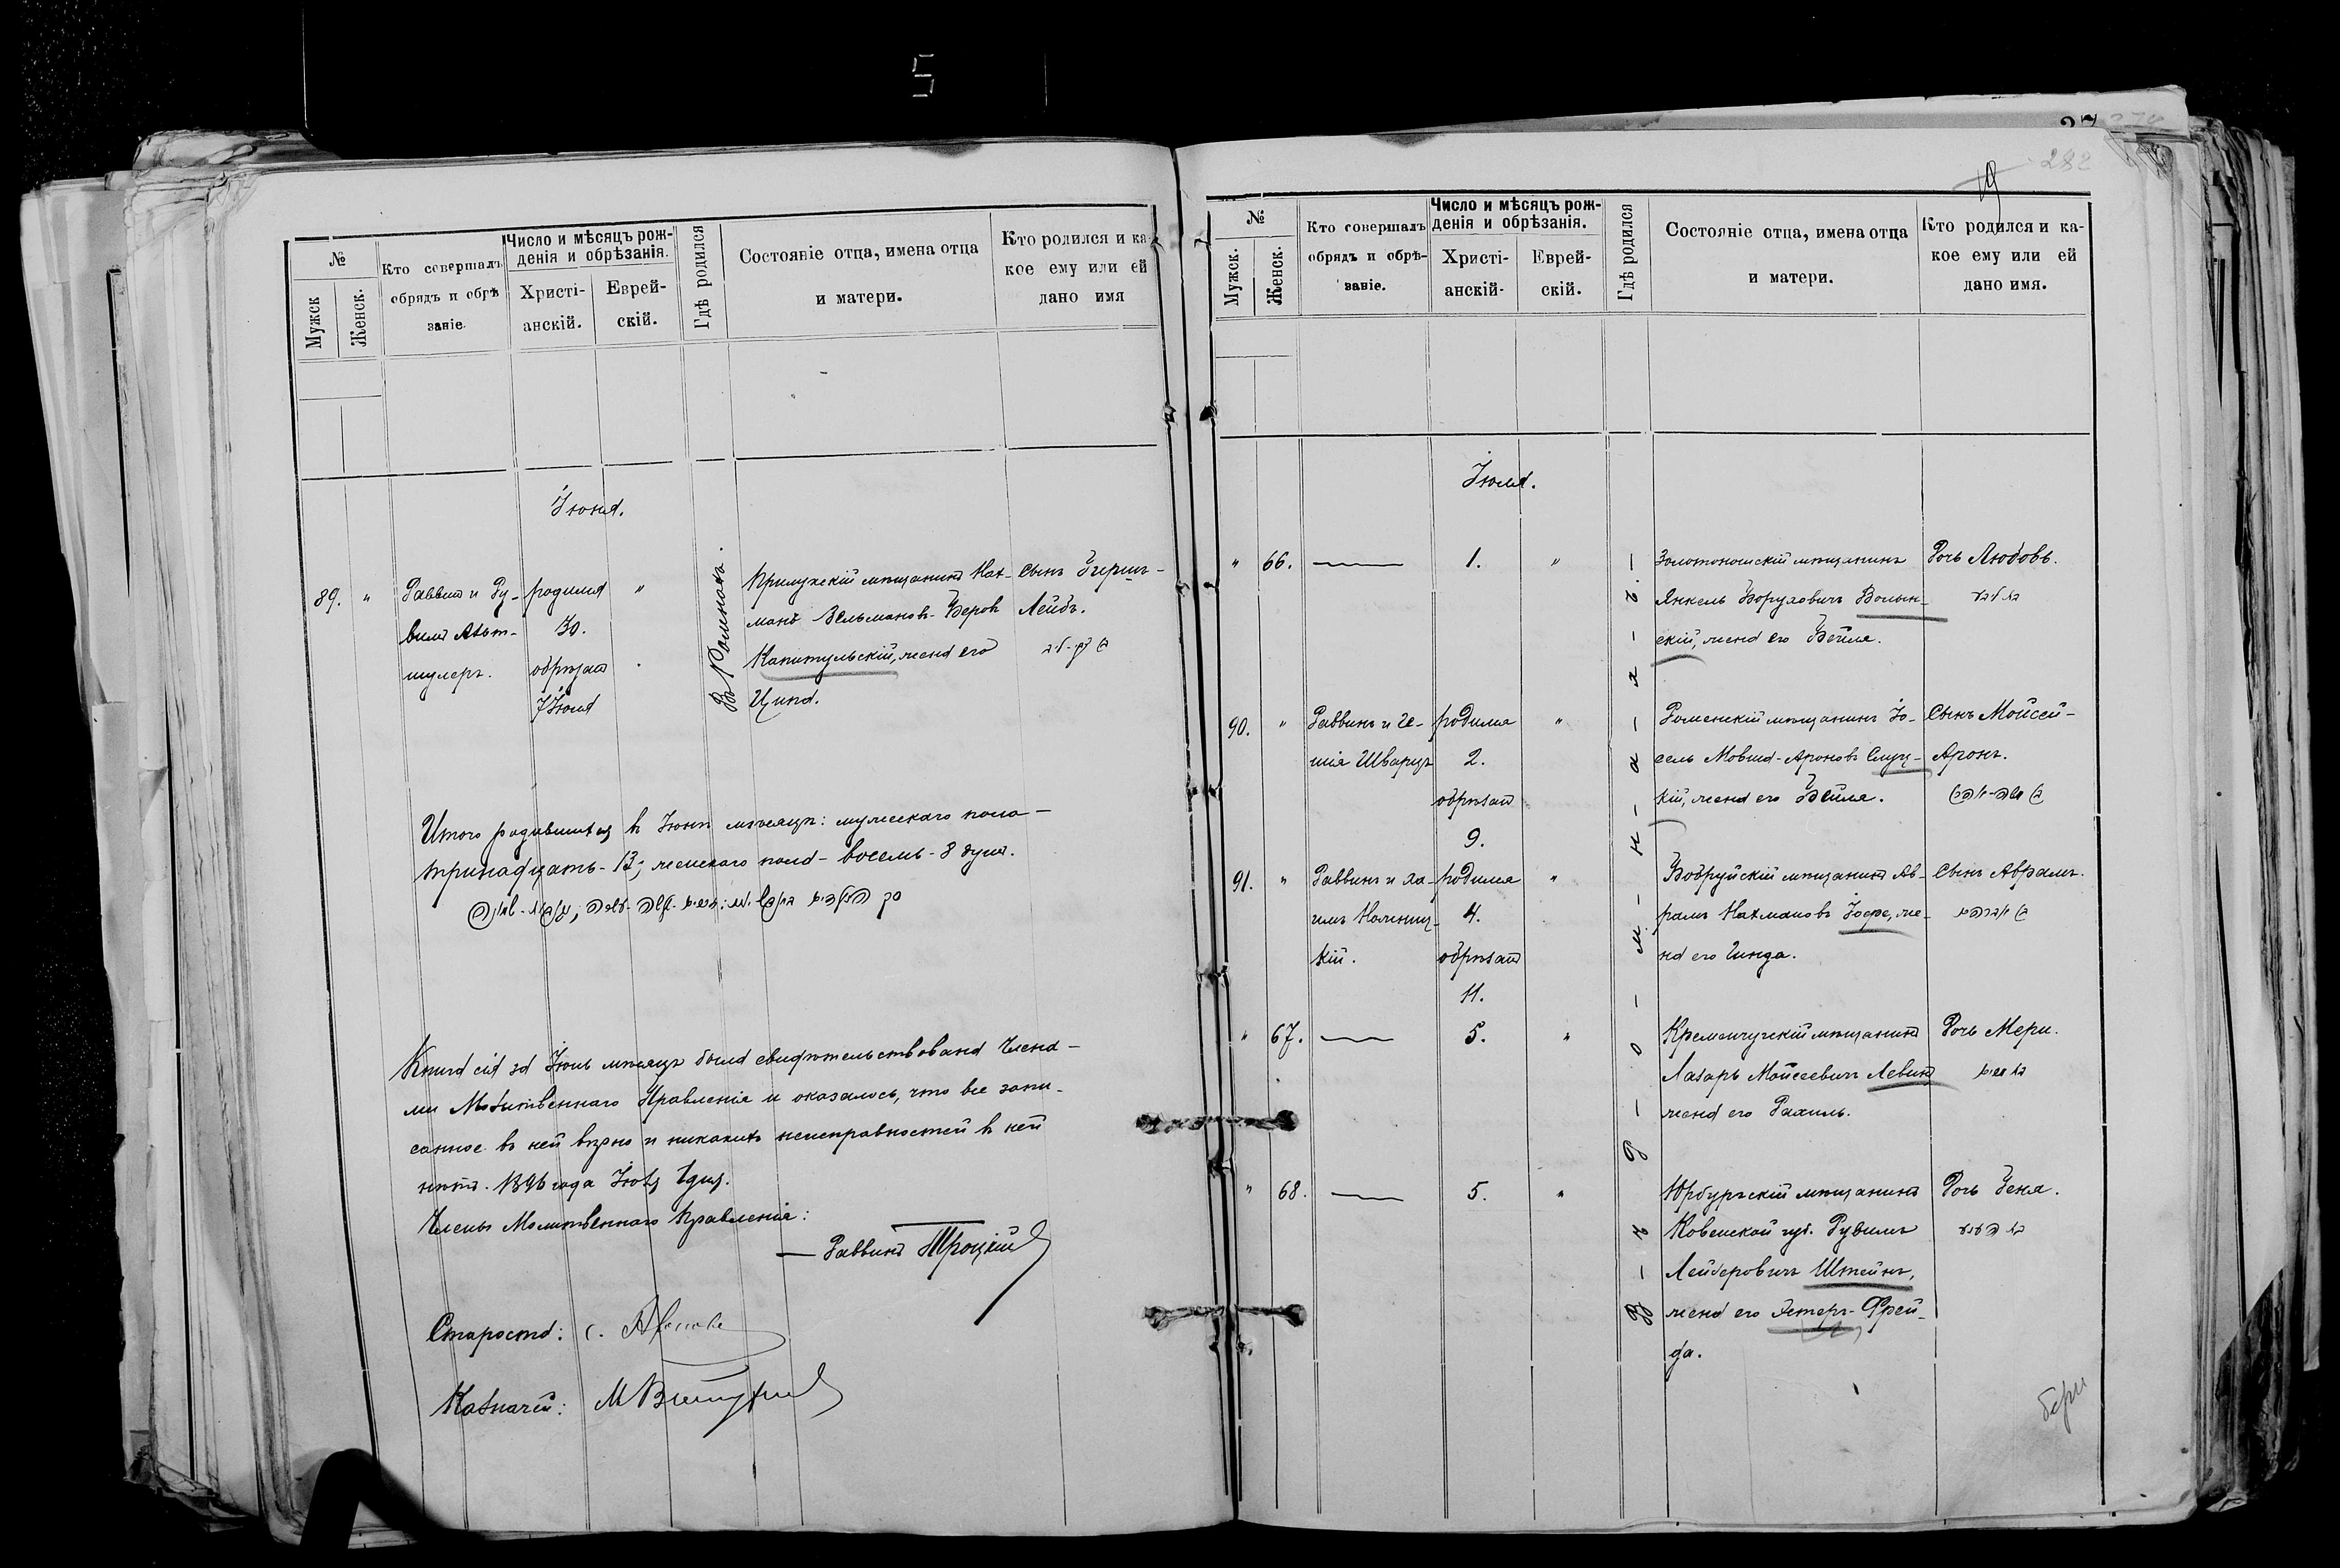 5
№
Мужск
Женск.
Кто совершалъ
обрядъ и обрѣ
заніе.
Число и мѣсяцъ рож-
денія и обрѣзанія.
Христі-
анскій.
Еврей-
скій.
Гдѣ родился
Состояніе отца, имена отца
и матери.
Кто родился и ка-
кое ему или ей
дано имя
Іюня.
89. "
Раввинъ и Ру-
вимъ Альт-
шулеръ.
родился
30.
обрѣзанъ
7 Іюля
"
Въ Ромнахъ.
Прилукскій мѣщанинъ Нах-
манъ Зельмановъ-Беровъ
Капитульскій, жена его
Ципа.
Сынъ Гершъ-
Лейбъ.
Итого родившихся въ Іюнѣ мѣсяцѣ: мужескаго пола —
тринадцать - 13; женскаго пола - восемь - 8 душъ.
Книга сія за Іюнь мѣсяцъ была свидѣтельствована Члена-
ми Молитвеннаго Правленія и оказалось, что все запи-
санное въ ней вѣрно и никакихъ неисправностей въ ней
нѣтъ. 1896 года Іюля 1 дня.
Члены Молитвеннаго Правленія:
— Раввинъ Троцкій
Староста: С.
Казначей: М
19
282
№
Мужск.
Женск.
Кто совершалъ
обрядъ и обрѣ-
заніе.
Число и мѣсяцъ рож-
денія и обрѣзанія.
Христі-
анскій-
Еврей-
скій.
Гдѣ родился
Состояніе отца, имена отца
и матери.
Кто родился и ка-
кое ему или ей
дано имя.
Іюля.
В — ъ — Р — о — м — н — а — х — ъ —
" 66. —
1.
"
Золотоношскій мѣщанинъ
Янкель Боруховичъ Волын-
скій, жена его Бейля.
Дочь Любовь.
90. "
Раввинъ и Ге-
шія Шварцъ
родился
2.
обрѣзанъ
9.
"
Роменскій мѣщанинъ Іо-
сель Мовша-Ароновъ Слуц-
кій, жена его Бейля.
Сынъ Мойсей-
Аронъ.
91. "
Раввинъ и Ха-
имъ
кій.
родился
4.
обрѣзанъ
11.
"
Бобруйскій мѣщанинъ Ав-
рамъ Нахмановъ Іофе, же-
на его Гинда.
Сынъ Абрамъ.
" 67. —
5.
"
Кременчугскій мѣщанинъ
Лазарь Мойсеевичъ Левинъ
жена его Рахиль.
Дочь Мери.
" 68. —
5.
"
Юрбургскій мѣщанинъ
Ковенской губ. Рувимъ
Лейберовичъ Штейнъ,
жена его Эстеръ-Фрей-
да.
Дочь Геня.